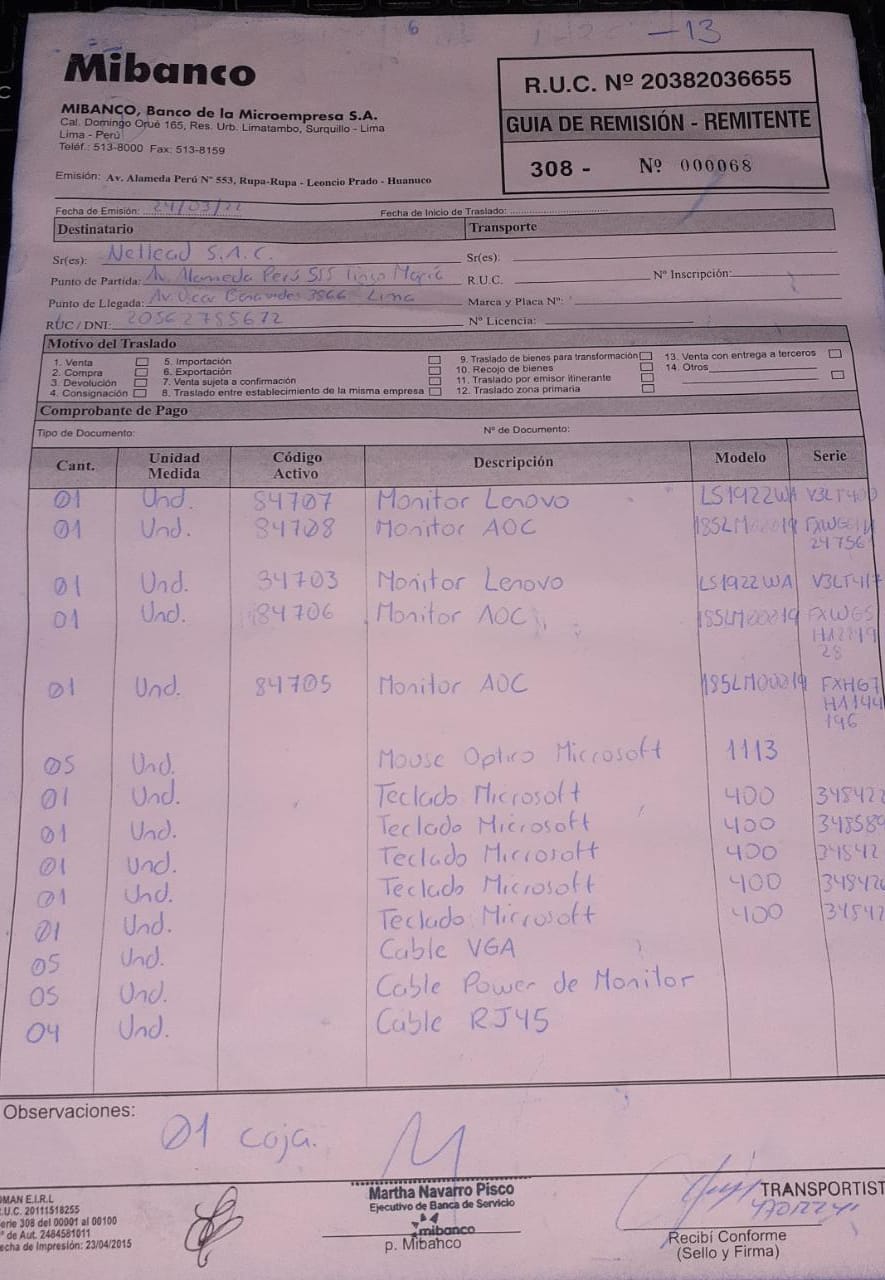 6 -13
Mibanco
MIBANCO, Banco de la Microempresa S.A.
Cal. Domingo Orué 165, Res. Urb. Limatambo, Surquillo - Lima
Lima - Perú
Teléf.: 513-8000 Fax: 513-8159
Emisión: Av. Alameda Perú Nº 553, Rupa-Rupa - Leoncio Prado - Huanuco
R.U.C. Nº 20382036655
GUIA DE REMISIÓN - REMITENTE
308 - Nº 000068
Fecha de Emisión: 24/03/22 Fecha de Inicio de Traslado:
Destinatario Transporte
Sr(es): Netlead S.A.C. Sr(es):
Punto de Partida: Av. Alameda Perú 555 Tingo María R.U.C. Nº Inscripción:
Punto de Llegada: Av. Oscar Benavides 3866 Lima Marca y Placa Nº:
RUC / DNI: 20562785672 Nº Licencia:
Motivo del Traslado
1. Venta 5. Importación 9. Traslado de bienes para transformación 13. Venta con entrega a terceros
2. Compra 6. Exportación 10. Recojo de bienes 14. Otros
3. Devolución 7. Venta sujeta a confirmación 11. Traslado por emisor itinerante
4. Consignación 8. Traslado entre establecimiento de la misma empresa 12. Traslado zona primaria
Comprobante de Pago
Tipo de Documento: Nº de Documento:
Cant. Unidad Medida Código Activo Descripción Modelo Serie
01 Und. 84707 Monitor Lenovo LS1922WA
01 Und. 84708 Monitor AOC 185LM00019
247561
01 Und. 84703 Monitor Lenovo LS1922WA V3LT417
01 Und. 84706 Monitor AOC 185LM00019 FXWG5
HA2819
28
01 Und. 84705 Monitor AOC 185LM00019 FXHG7
HA144
196
05 Und. Mouse Optico Microsoft 1113
01 Und. Teclado Microsoft 400
01 Und. Teclado Microsoft 400
01 Und. Teclado Microsoft 400
01 Und. Teclado Microsoft 400
01 Und. Teclado Microsoft 400
05 Und. Cable VGA
05 Und. Cable Power de Monitor
04 Und. Cable RJ45
Observaciones:
01 caja.
OMAN E.I.R.L
R.U.C. 20111518255
Serie 308 del 00001 al 00100
Nº de Aut. 2484581011
Fecha de Impresión: 23/04/2015
Martha Navarro Pisco
Ejecutivo de Banca de Servicio
mibanco
p. Mibanco
TRANSPORTIST
Recibí Conforme
(Sello y Firma)